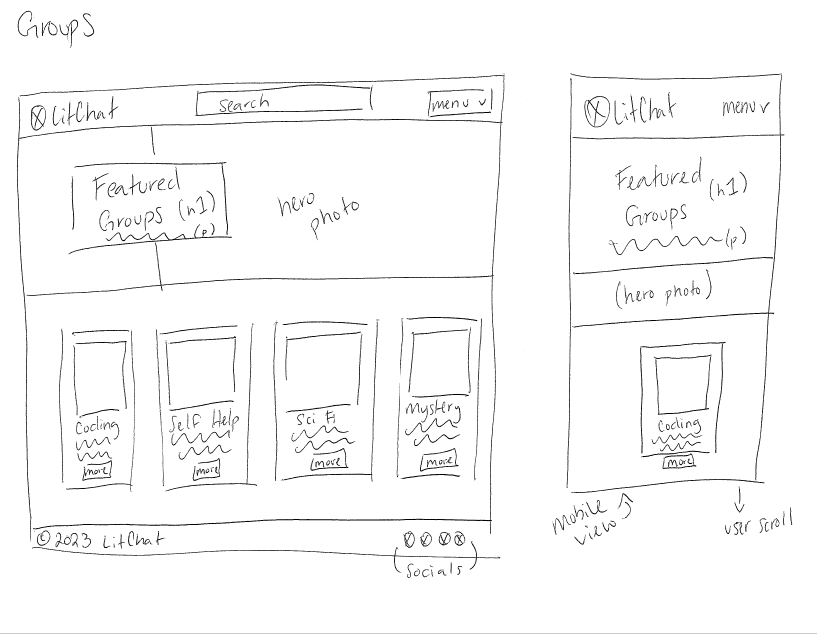 Groups
LitChat
search
menu v
Featured
Groups (h1)
(p)
hero
photo
Coding
more
Self Help
more
Sci Fi
more
Mystery
more
© 2023 LitChat
(socials)
LitChat
menu v
Featured
(h1)
Groups
(p)
(hero photo)
Coding
more
mobile
view
user scroll